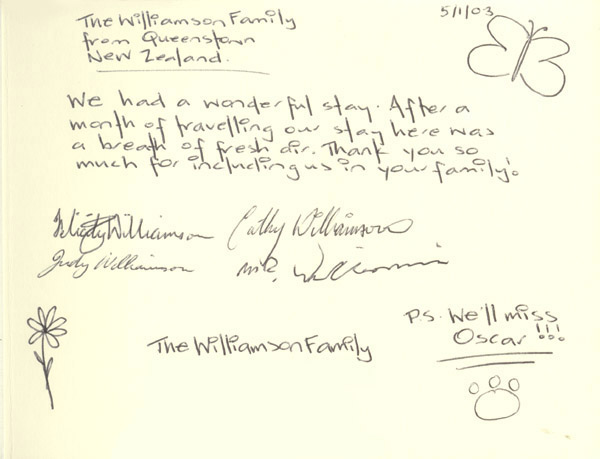 The Williamson Family
from Queenstown
New Zealand.
5/1/03
We had a wonderful stay. After a
month of travelling our stay here was
a breath of fresh air. Thank you so
much for including us in your family!
Williamson Cathy Williamson
Judy Williamson
P.S. We'll miss
Oscar!!!
The Williamson Family